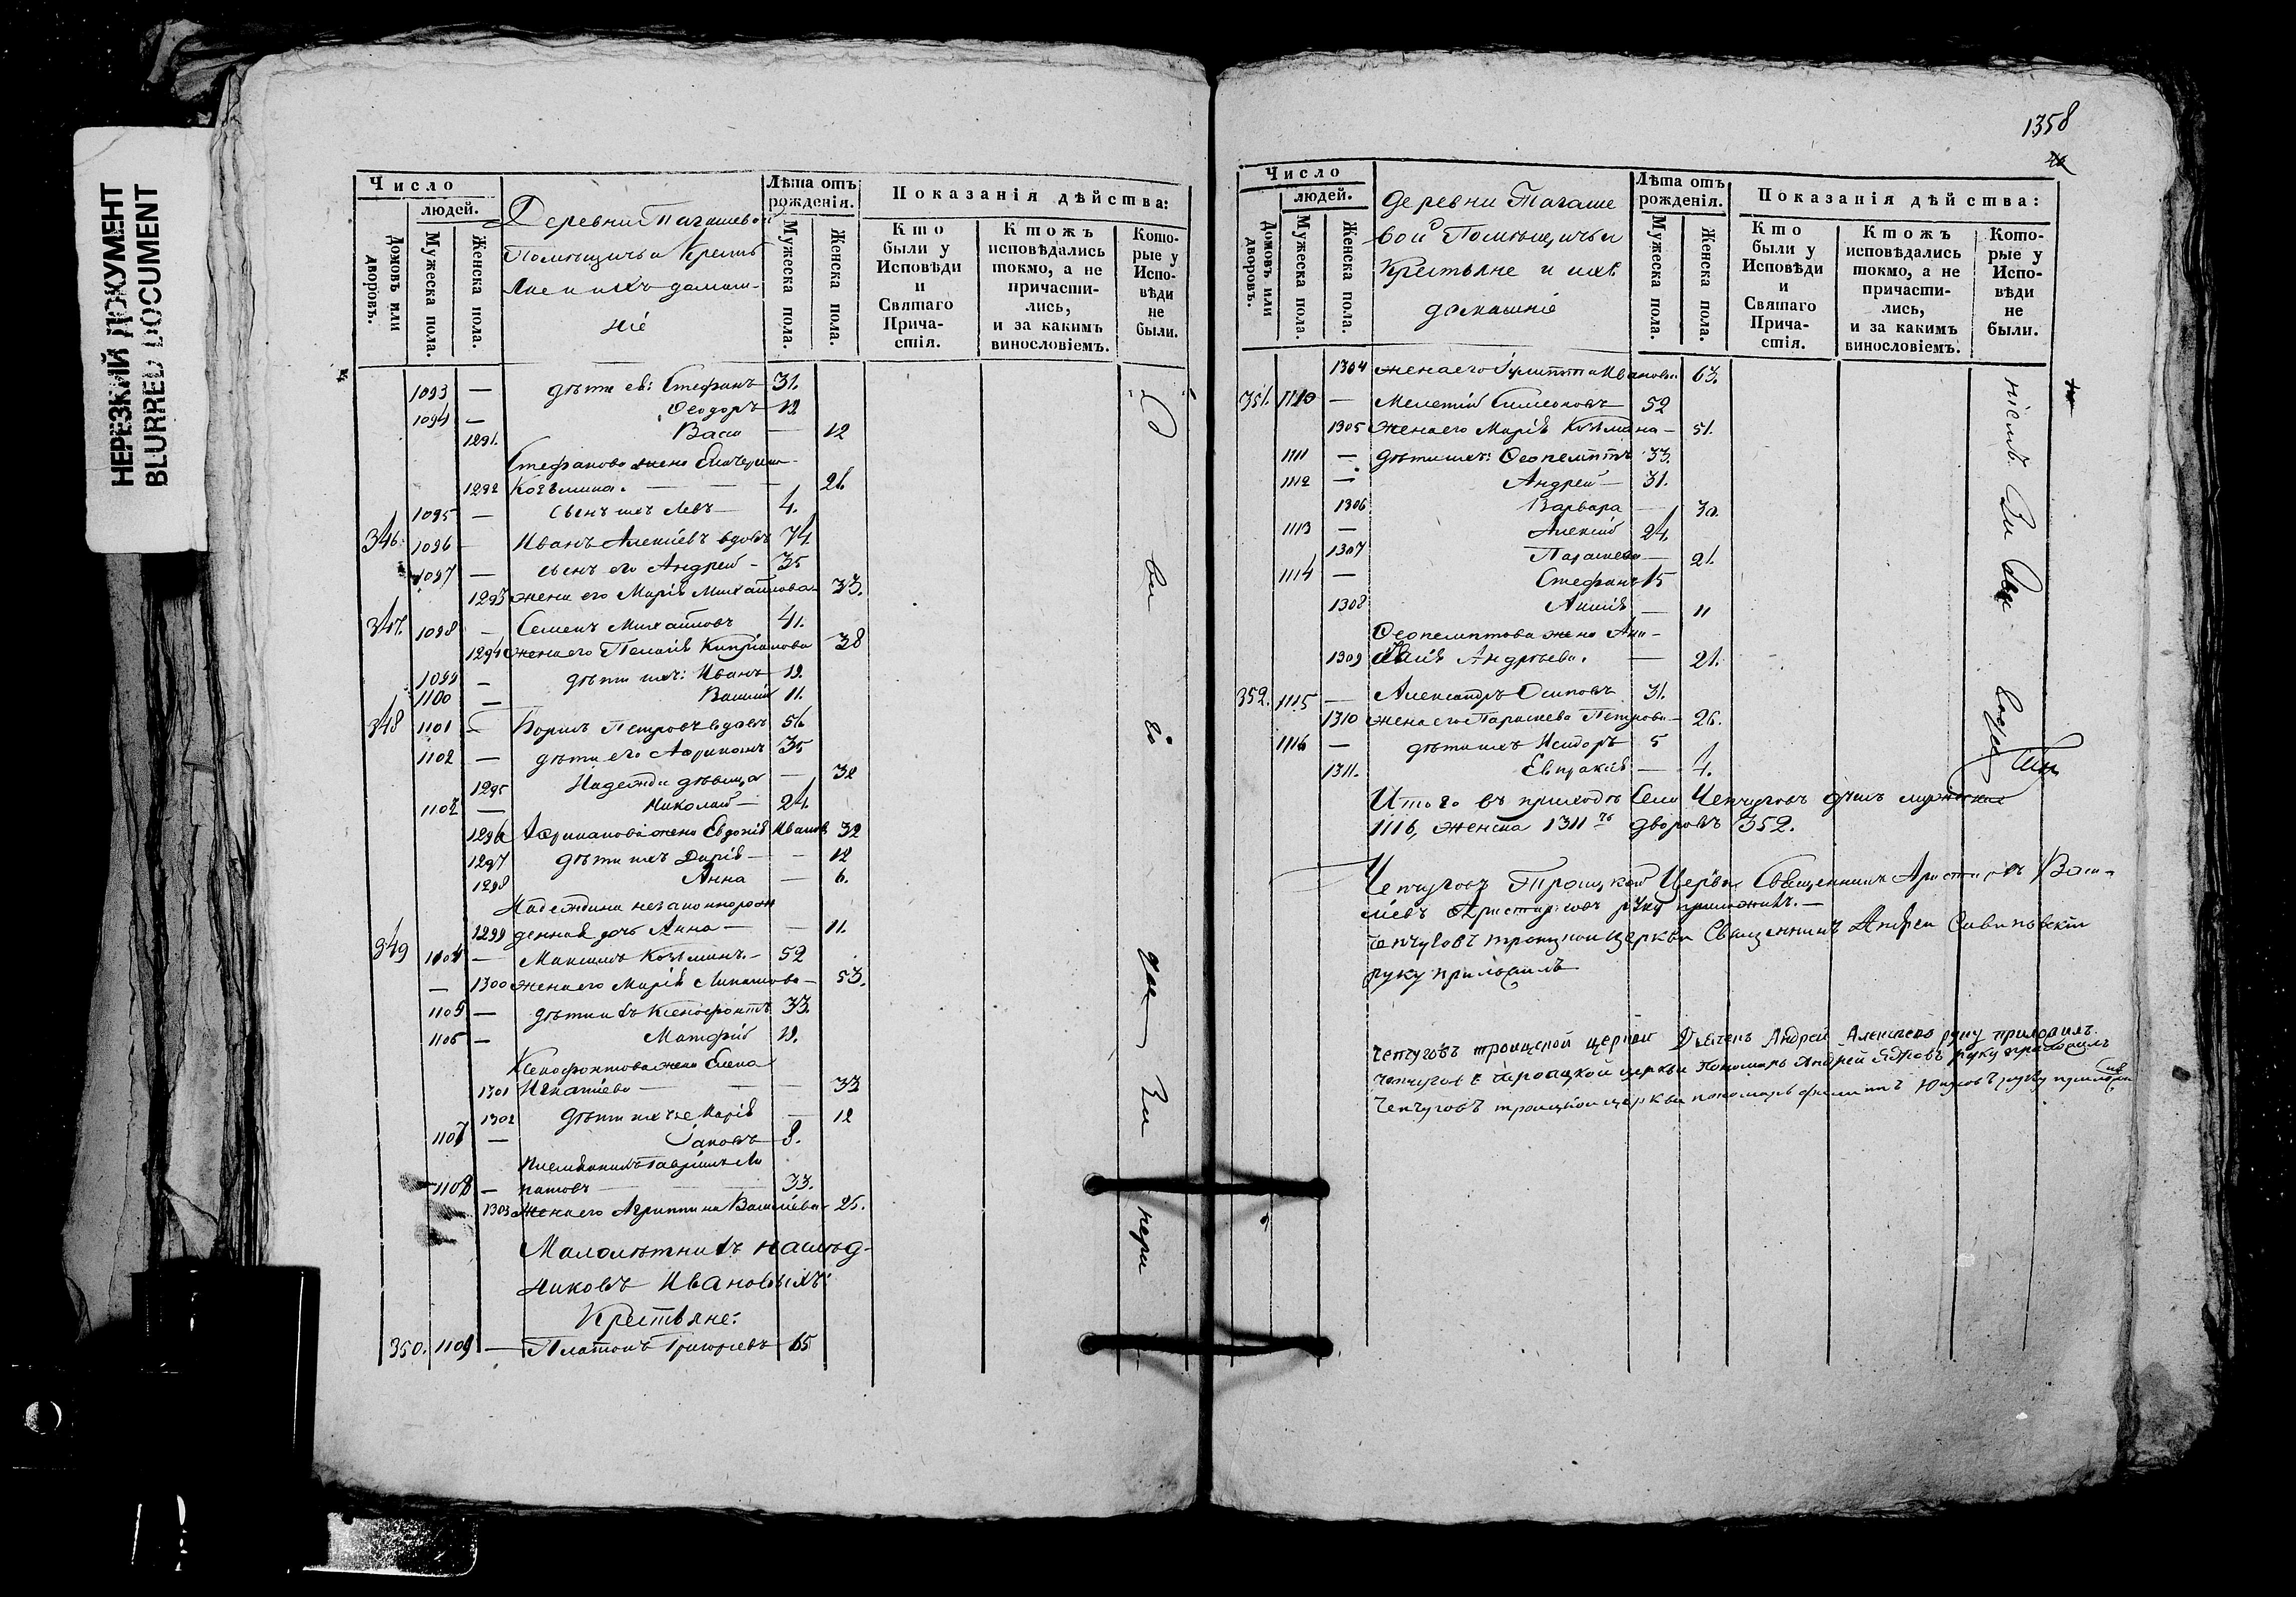 НЕРЕЗКИЙ ДОКУМЕНТ
BLURRED DOCUMENT
Число
людей.
Домовъ или дворовъ.
Мужеска пола.
Женска пола.
Деревни Тагашевой
Помѣщичьи Кресть
яне и ихъ домаш-
ніе
Лѣта отъ рожденія.
Мужеска пола.
Женска пола.
Показанія дѣйства:
Кто были у Исповѣди и Святаго Прича-стія.
Ктожъ исповѣдались токмо, а не причасти-лись, и за какимъ винословіемъ.
Кото-рые у Испо-вѣди не были.
1093 — дѣти ев: Стефанъ 31.
1094 — Ѳеодоръ 12
1291. Васса — 12
Стефанова жена Екатерина
1292 Козьмина. — 21.
1095 — Сынъ ихъ Левъ — 4.
346. 1096 — Иванъ Алексіевъ вдовъ 74.
1097 — сынъ его Андрей — 35
1293 жена его Марія Михайлова — 33.
347. 1098 — Семенъ Михайловъ 41.
1294 жена его Пелагія Кипріанова 38
1099 — дѣти ихъ: Иванъ — 19.
1100 — Василій 11.
348 1101 — Борисъ Петровъ вдовъ 56
1102 — дѣти его Африканъ 35
1295 Надежда дѣвица — 32
1103 — Николай — 24.
1296 Африканова жена Евдокія Иванов 32
1297 дѣти ихъ Дарія — 12
1298 Анна — 6.
Надеждина незаконнорож
1299 денная дочь Анна — 11.
349 1104 — Максимъ Козьминъ — 52
— 1300 жена его Марія — 53.
1105 — дѣти ихъ Ксенофонтъ 33.
1106 — Матфій 19.
Ксенофонтова жена Елена
1301 Игнатіева — 33
1302 Дѣти ихъ Марія — 12
1107 — Іаковъ — 8.
Племянникъ Гавріилъ Ли
1108 — патовъ — 33.
1303 Жена его Агриппина Васильева — 25.
Малолѣтнихъ наслѣд-
никовъ Ивановыхъ:
Крестьяне:
350. 1109 — Платонъ Григорьевъ 65
1358
Число
людей.
Домовъ или дворовъ.
Мужеска пола.
Женска пола.
деревни Тагаше
вой Помѣщичьи
Крестьяне и ихъ
домашніе
Лѣта отъ рожденія.
Мужеска пола.
Женска пола.
Показанія дѣйства:
Кто были у Исповѣди и Святаго Прича-стія.
Ктожъ исповѣдались токмо, а не причасти-лись, и за какимъ винословіемъ.
Кото-рые у Испо-вѣди не были.
1304 жена его Иванова 63.
351. 1110 — Мелетій Симеоновъ 52
1305 Жена его Марія Козьмина — 51.
1111 — дѣти ихъ: Ѳеопемптъ 33.
1112 — Андрей — 31.
1306 Варвара — 30.
1113 — Алексій 24.
1307 Параскева — 21.
1114 — Стефанъ 15
1308 — 11
Ѳеопемптова жена
1309 Андреева. — 21.
352. 1115 — Александръ Осиповъ 31.
1310 жена его Параскева Петрова — 26.
1116 — дѣти ихъ Исидоръ 5
1311. Евпраксія — 4.
Итого въ приходѣ Села Чепчуговъ душъ мужеска
1116, женска 1311 дворовъ 352.
Чепчуговъ Троицкой Церкви Священникъ Васи-
ліевъ руку приложилъ. —
Чепчуговъ троицкой церкви Священникъ Андрей
руку приложилъ
Чепчуговъ троицкой церкви Андрей Алексѣевъ руку приложилъ
Чепчуговъ троицкой церкви Пономарь Андрей руку приложилъ
Чепчуговъ троицкой церкви пономарь руку приложилъ